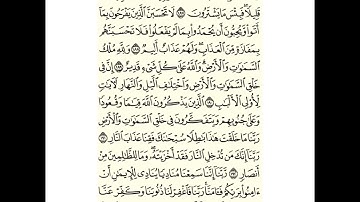 قَلِيلًا فَبِئْسَ مَا يَشْتَرُونَ ١٨٧ لَا تَحْسَبَنَّ الَّذِينَ يَفْرَحُونَ بِمَا
أَتَوا وَّيُحِبُّونَ أَن يُحْمَدُوا بِمَا لَمْ يَفْعَلُوا فَلَا تَحْسَبَنَّهُم
بِمَفَازَةٍ مِّنَ الْعَذَابِ وَلَهُمْ عَذَابٌ أَلِيمٌ ١٨٨ وَلِلَّهِ مُلْكُ
السَّمَاوَاتِ وَالْأَرْضِ وَاللَّهُ عَلَىٰ كُلِّ شَيْءٍ قَدِيرٌ ١٨٩ إِنَّ فِي
خَلْقِ السَّمَاوَاتِ وَالْأَرْضِ وَاخْتِلَافِ اللَّيْلِ وَالنَّهَارِ لَآيَاتٍ
لِّأُولِي الْأَلْبَابِ ١٩٠ الَّذِينَ يَذْكُرُونَ اللَّهَ قِيَامًا وَقُعُودًا
وَعَلَىٰ جُنُوبِهِمْ وَيَتَفَكَّرُونَ فِي خَلْقِ السَّمَاوَاتِ وَالْأَرْضِ
رَبَّنَا مَا خَلَقْتَ هَٰذَا بَاطِلًا سُبْحَانَكَ فَقِنَا عَذَابَ النَّارِ ١٩١
رَبَّنَا إِنَّكَ مَن تُدْخِلِ النَّارَ فَقَدْ أَخْزَيْتَهُ وَمَا لِلظَّالِمِينَ مِنْ
أَنصَارٍ ١٩٢ رَّبَّنَا إِنَّنَا سَمِعْنَا مُنَادِيًا يُنَادِي لِلْإِيمَانِ أَنْ
آمِنُوا بِرَبِّكُمْ فَآمَنَّا رَبَّنَا فَاغْفِرْ لَنَا ذُنُوبَنَا وَكَفِّرْ عَنَّا